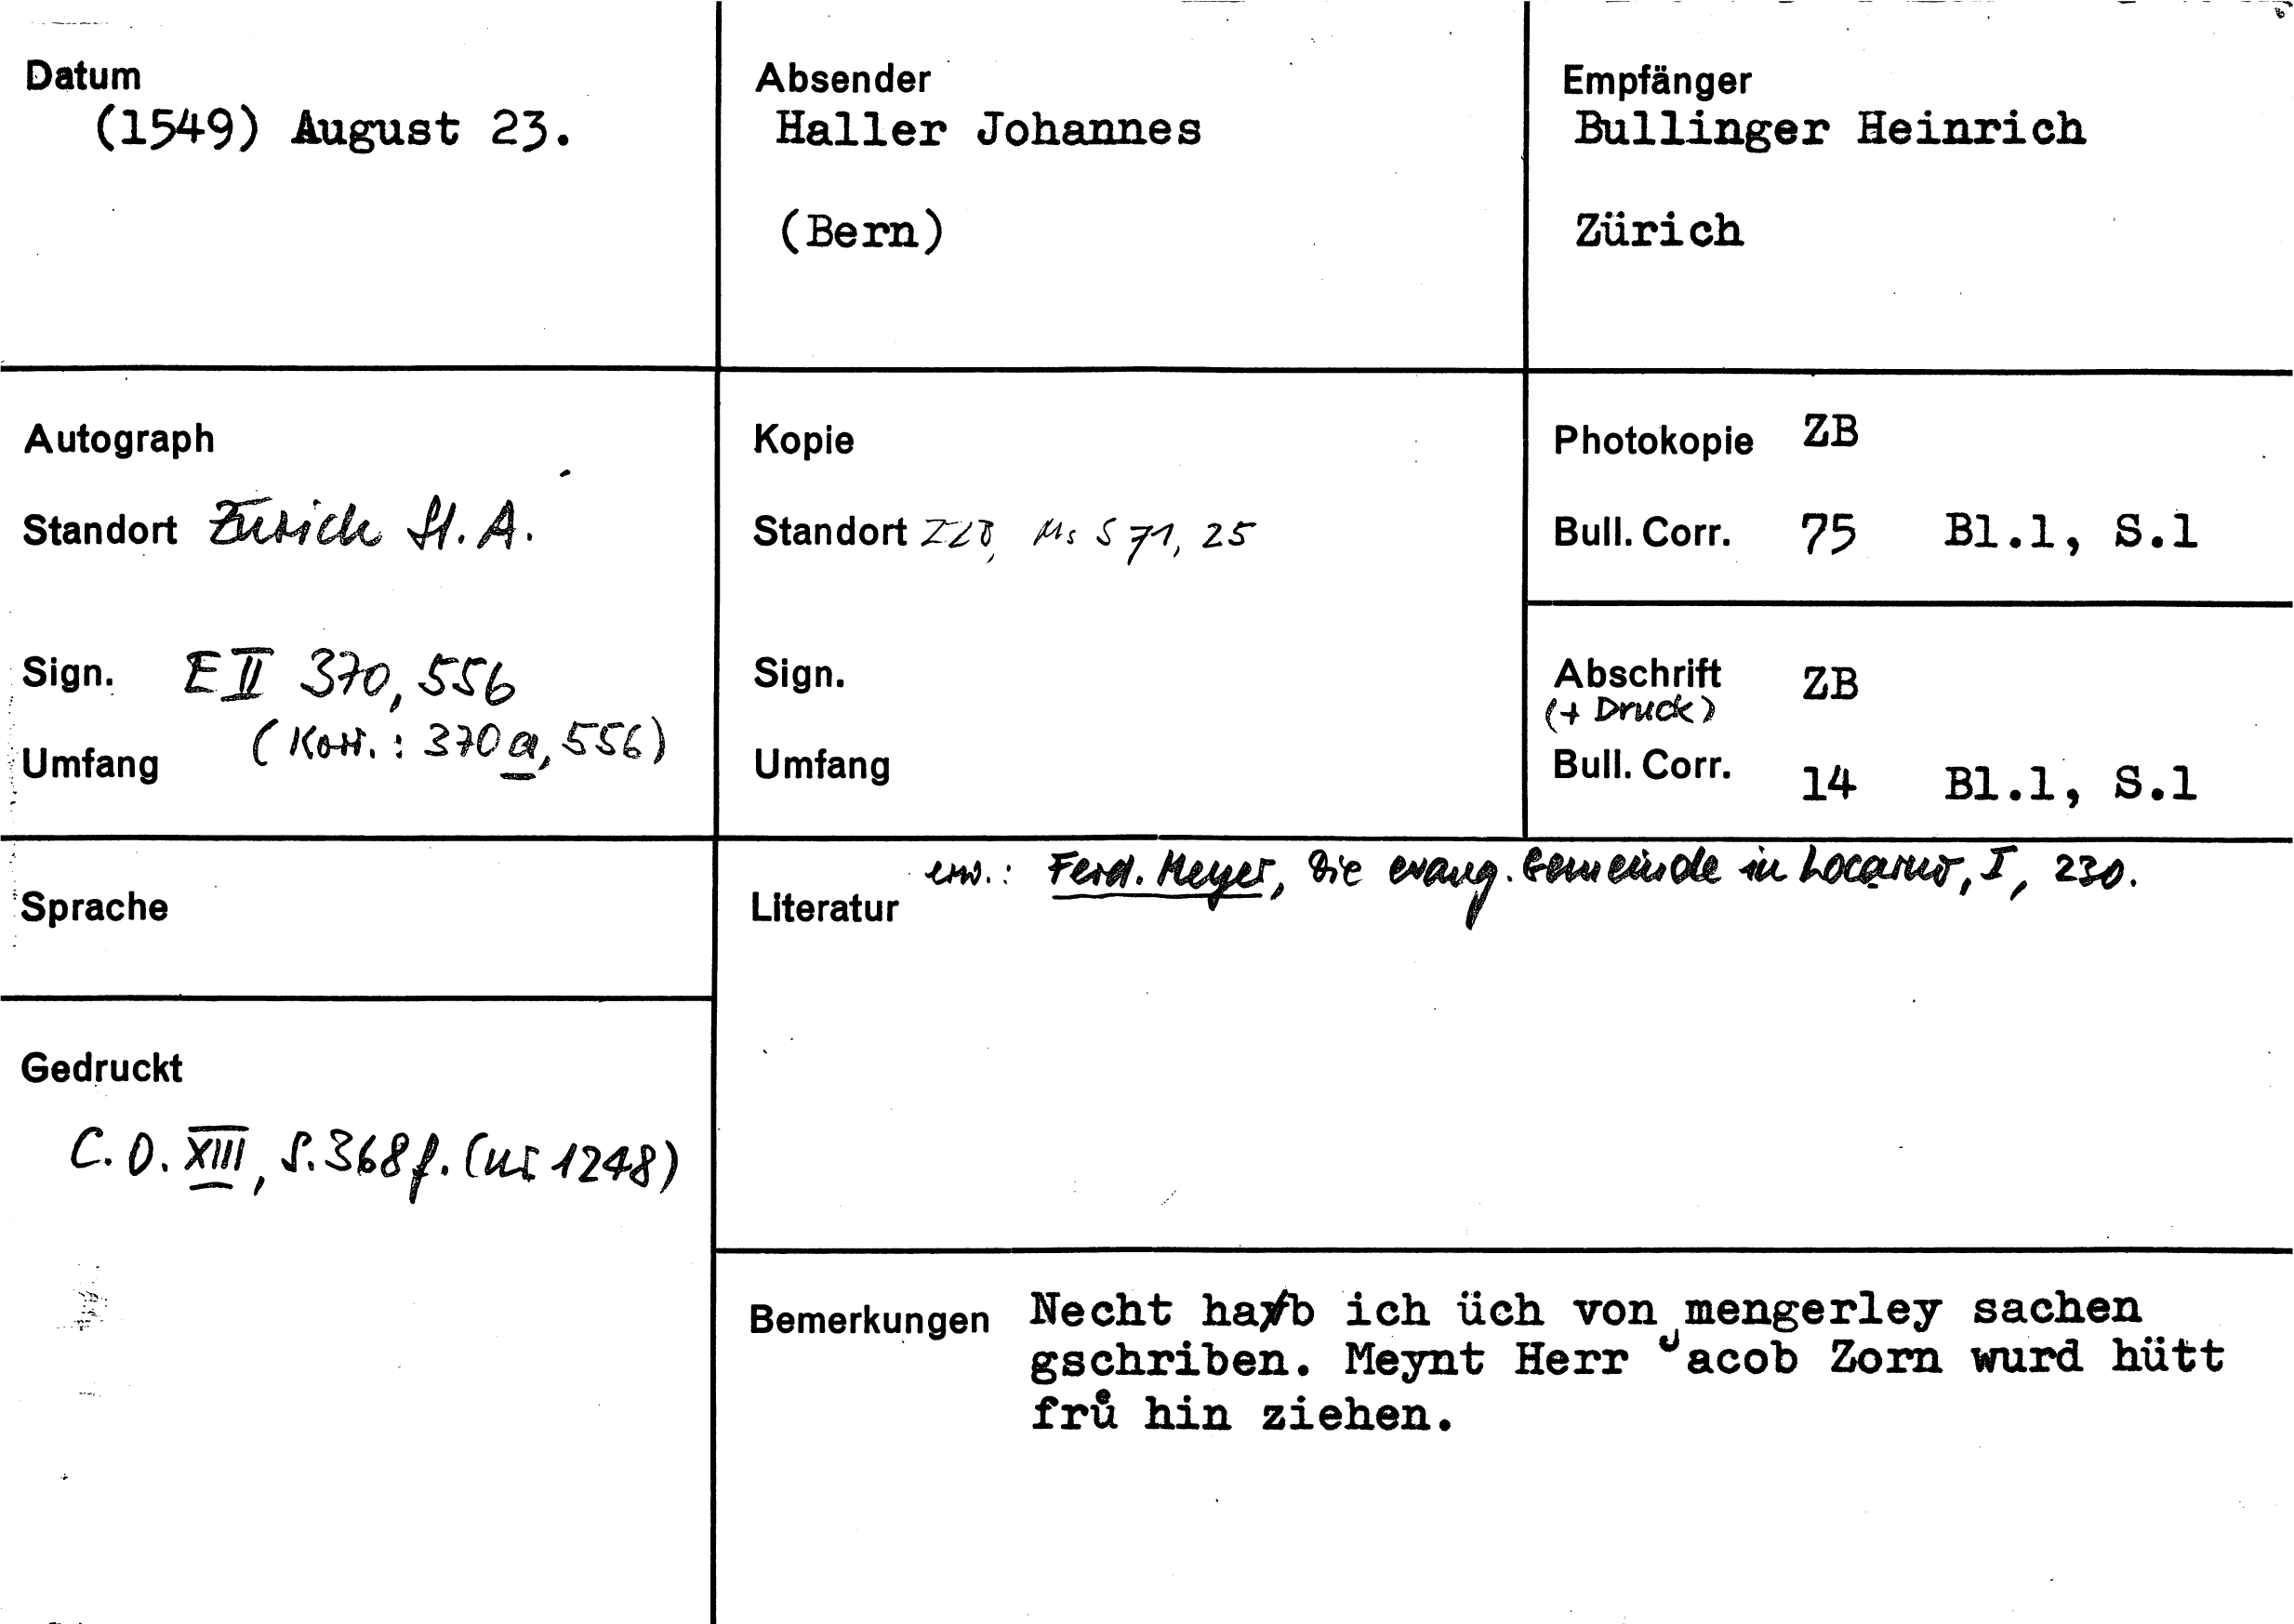 Datum
(1549) August 23.
Absender
Haller Johannes
(Bern)
Empfänger
Bullinger Heinrich
Zürich
Autograph
Standort Zürich St. A.
Sign. E II 370, 556
(Korr.: 370 a, 556)
Umfang
Kopie
Standort ZZB, Ms S 71, 25
Sign.
Umfang
Photokopie ZB
Bull. Corr. 75 Bl.1, S.1
Abschrift ZB
(+ Druck)
Bull. Corr. 14 Bl.1, S.1
Sprache
Gedruckt
C. O. XIII, S. 368 f. (nr 1248)
erw.: Ferd. Meyer, Die evang. Gemeinde in Locarno, I, 230.
Literatur
Bemerkungen Necht hab ich üch von mengerley sachen
gschriben. Meynt Herr Jacob Zorn wurd hütt
fruͤ hin ziehen.